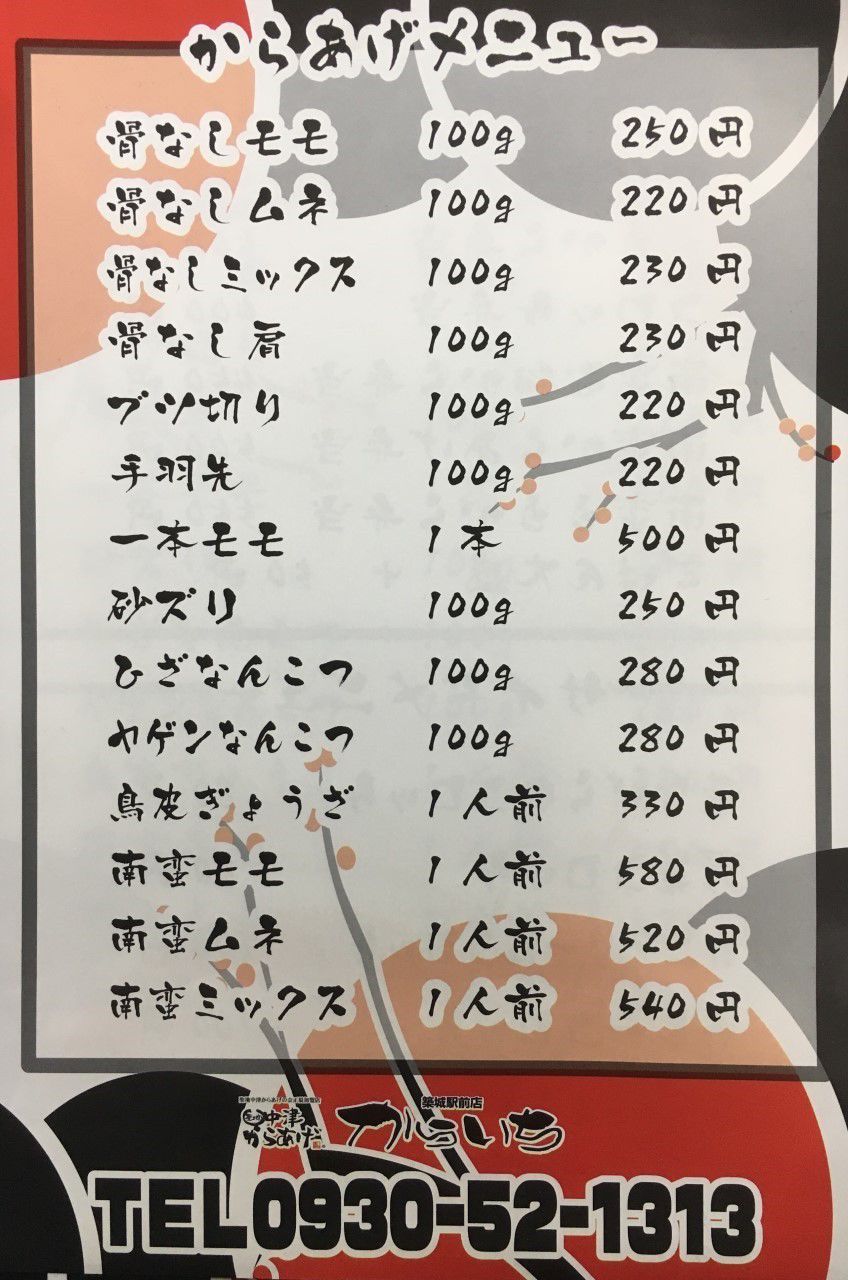 からあげメニュー
骨なしモモ 100g 250円
骨なしムネ 100g 220円
骨なしミックス 100g 230円
骨なし肩 100g 230円
ブツ切り 100g 220円
手羽先 100g 220円
一本モモ 1本 500円
砂ズリ 100g 250円
ひざなんこつ 100g 280円
ヤゲンなんこつ 100g 280円
鳥皮ぎょうざ 1人前 330円
南蛮モモ 1人前 580円
南蛮ムネ 1人前 520円
南蛮ミックス 1人前 540円
築城駅前店
中津
からあげ
からいち
TEL0930-52-1313